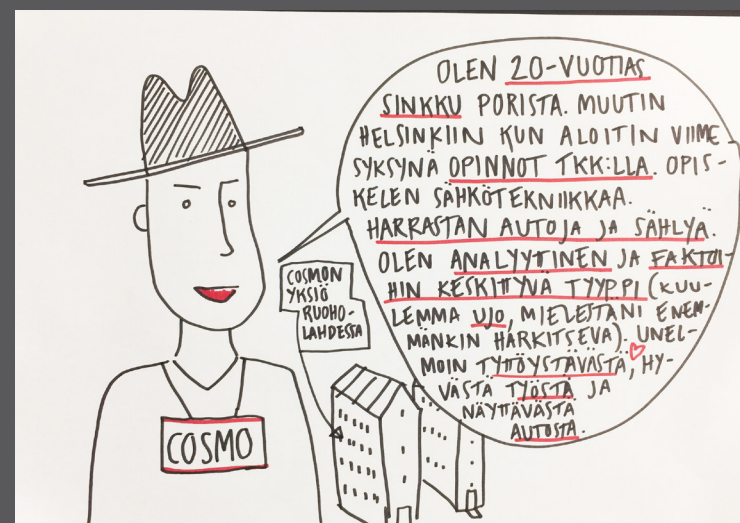 OLEN 20-VUOTIAS
SINKKU PORISTA. MUUTIN
HELSINKIIN KUN ALOITIN VIIME
SYKSYNÄ OPINNOT TKK:LLA. OPIS-
KELEN SÄHKÖTEKNIIKKAA.
HARRASTAN AUTOJA JA SÄHLYÄ.
OLEN ANALYYTTINEN JA FAKTOI-
HIN KESKITTYVÄ TYYPPI (KUU-
LEMMA UJO, MIELESTÄNI ENEM-
MÄNKIN HARKITSEVA). UNEL-
MOIN TYTTÖYSTÄVÄSTÄ, HY-
VÄSTÄ TYÖSTÄ JA
NÄYTTÄVÄSTÄ
AUTOSTA.
COSMON
YKSIÖ
RUOHO-
LAHDESSA
COSMO